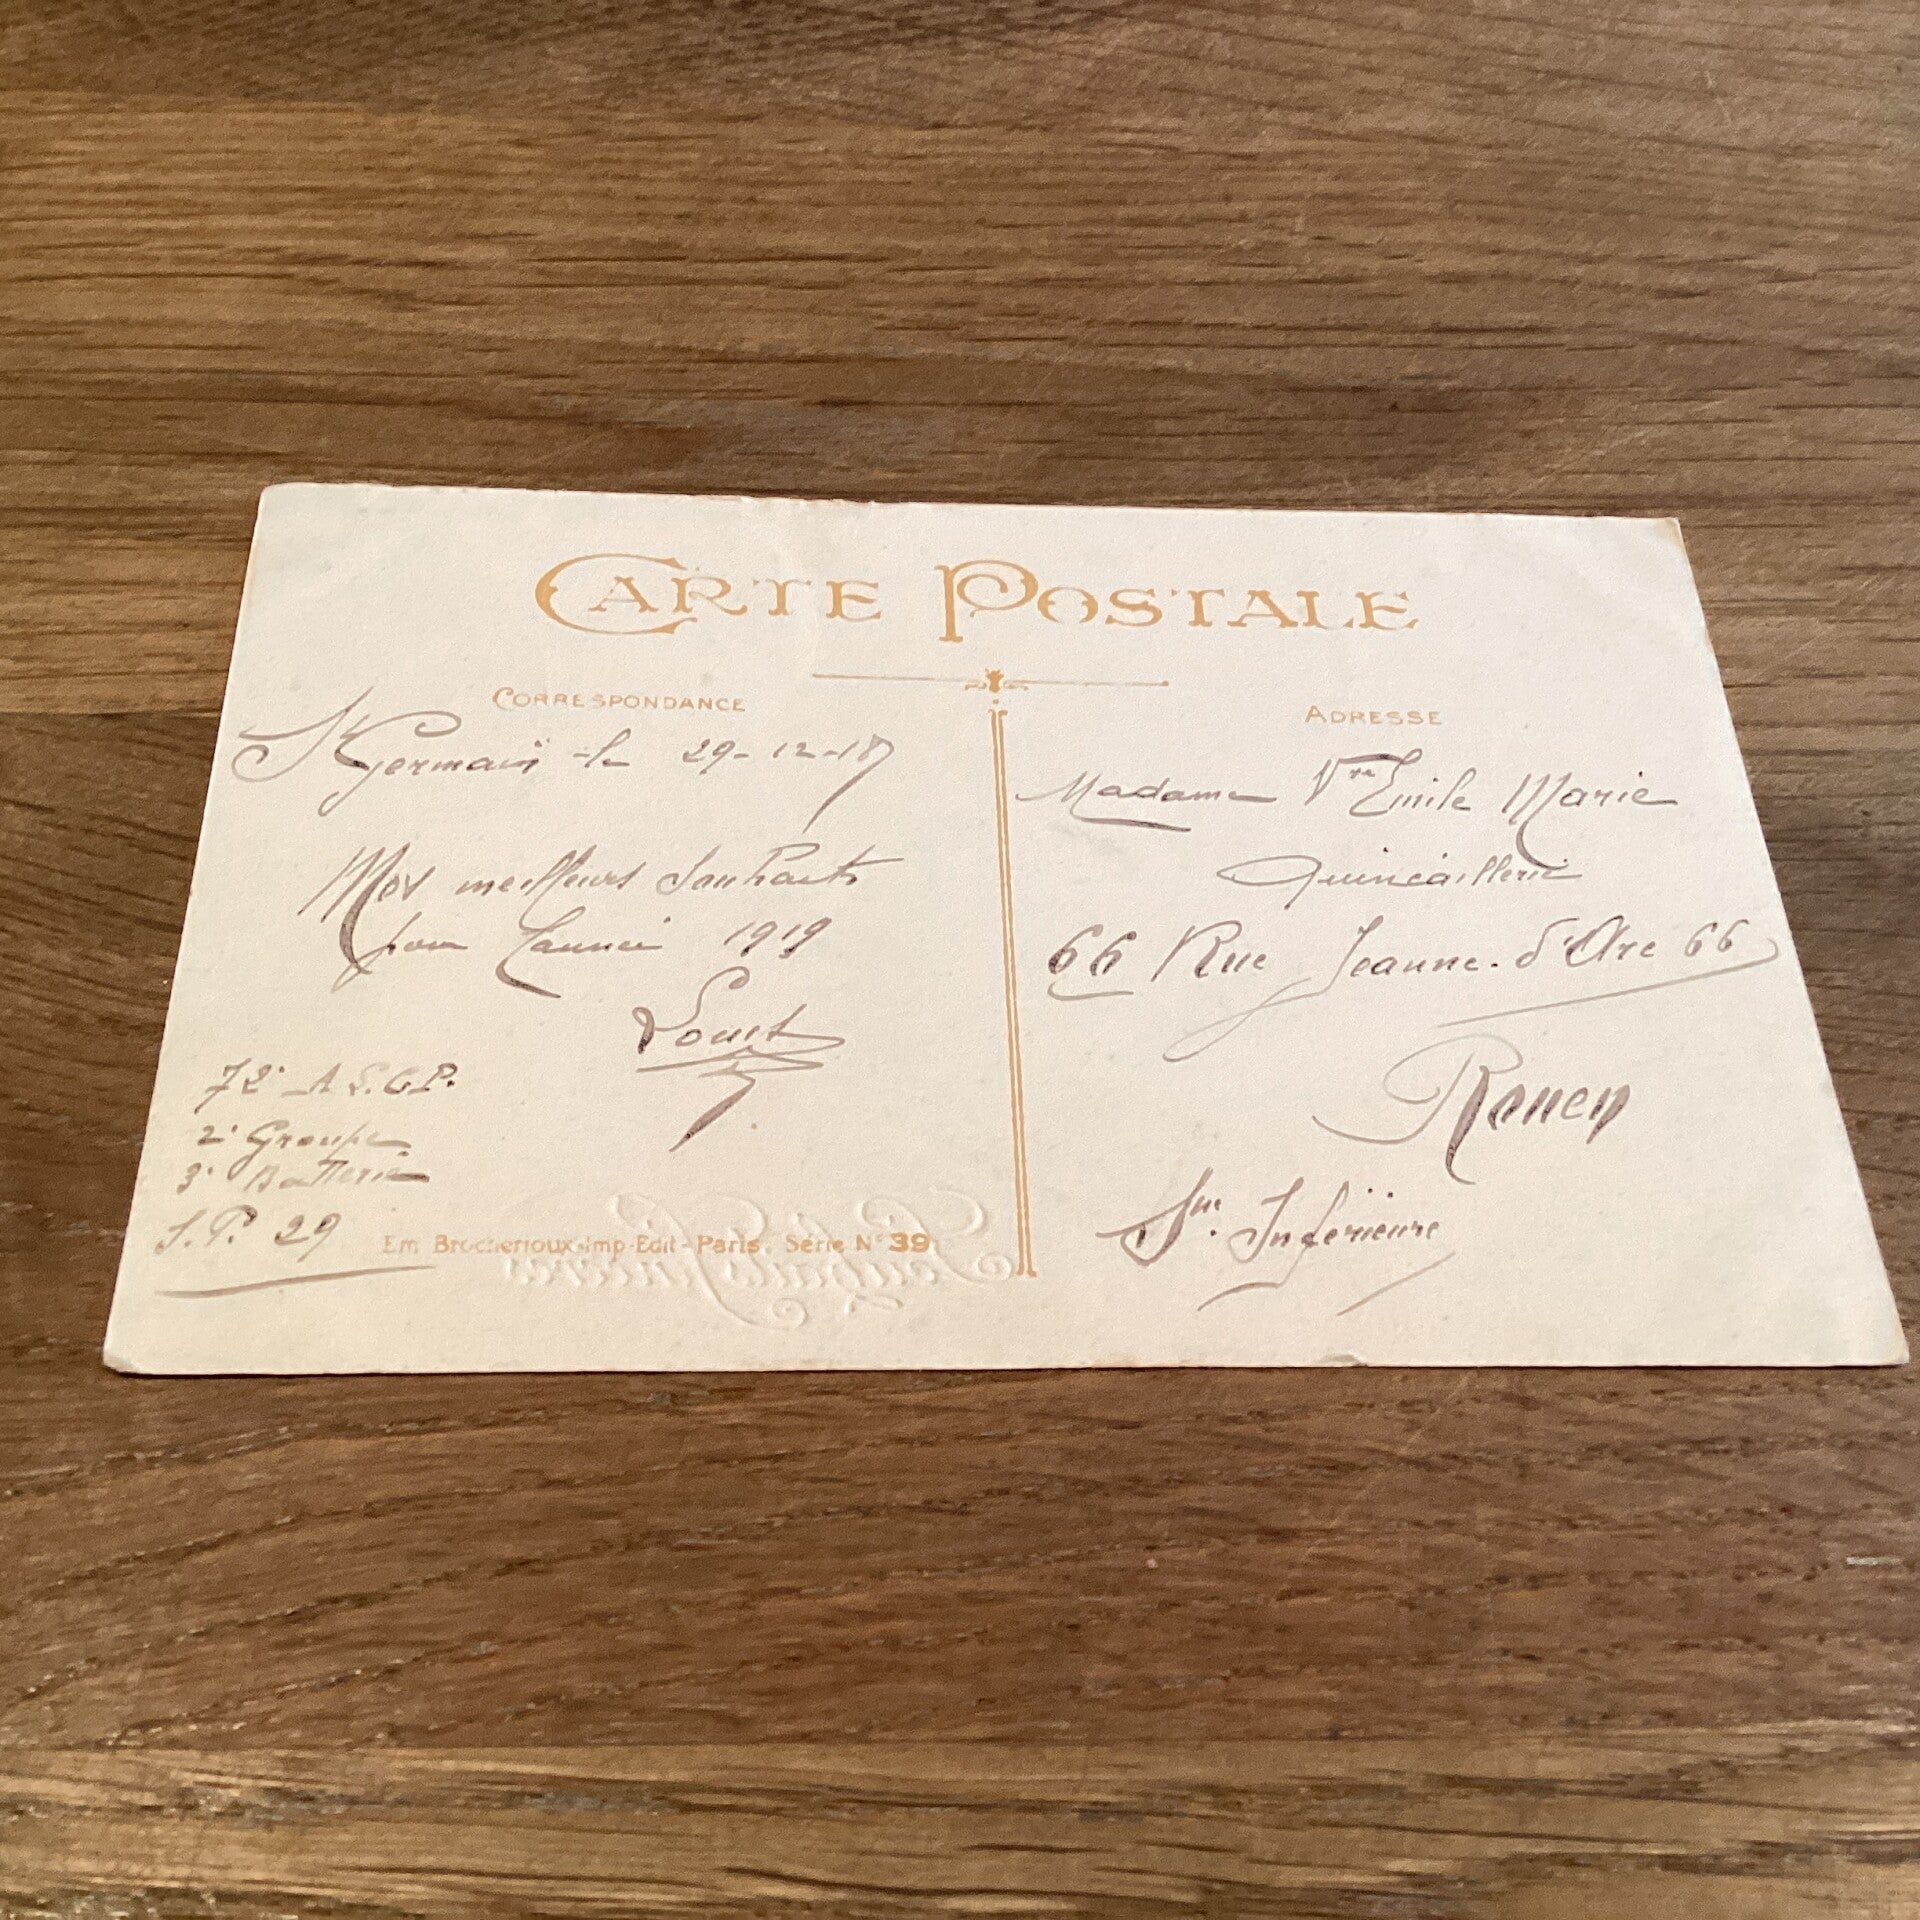 CARTE POSTALE
CORRESPONDANCE
St Germain le 29-12-18
Mes meilleurs Souhaits
pour L'année 1919
Louis
72e A S.C.P.
2e Groupe
3e Batterie
S.P. 29
Em Brocherioux-Imp-Edit-Paris. Série No 39
ADRESSE
Madame Vve Emile Marie
Quincaillerie
66 Rue Jeanne-d'Arc 66
Rouen
Sne Inférieure